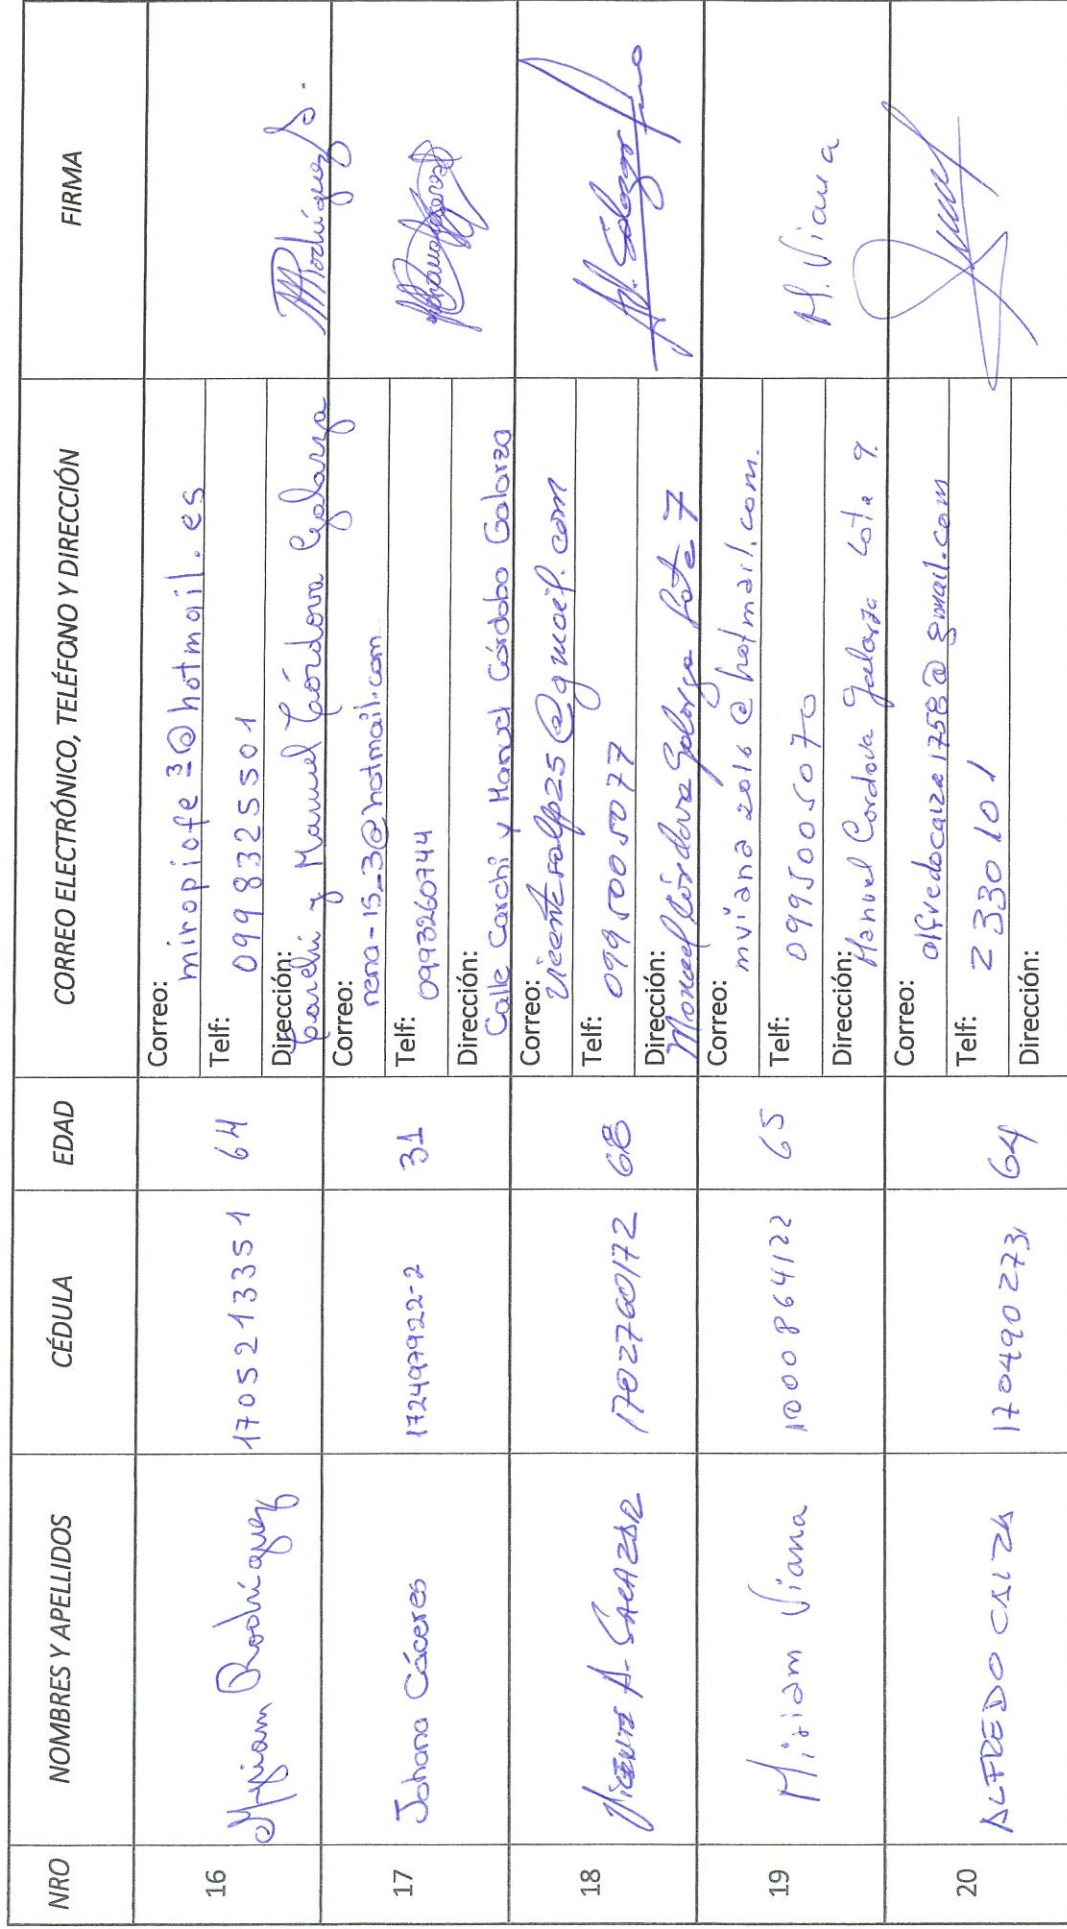 NRO NOMBRES Y APELLIDOS CÉDULA EDAD CORREO ELECTRÓNICO, TELÉFONO Y DIRECCIÓN FIRMA
16 Myriam Rodríguez 1705213351 64
Correo: miropiofe3@hotmail.es
Telf: 0998325501
Dirección: Carchi y Manuel Córdova Galarza
MRodríguez S.
17 Johana Cáceres 172497922-2 31
Correo: nena-15_3@hotmail.com
Telf: 0993260744
Dirección:
Calle Carchi y Manuel Córdoba Galarza
18 Vicente A. Salazar 1702760172 68
Correo: vicentesalp25@gmail.com
Telf: 0995005077
Dirección: Manuel Córdova Galarza Lote 7
19 Miriam Viana 1000864122 65
Correo: mviana2016@hotmail.com.
Telf: 0995005070
Dirección: Manuel Cordova Galarza Lote 9.
M. Viana
20 ALFREDO CAIZA 1704902731 64
Correo: alfredocaiza1758@gmail.com
Telf: 2330101
Dirección: